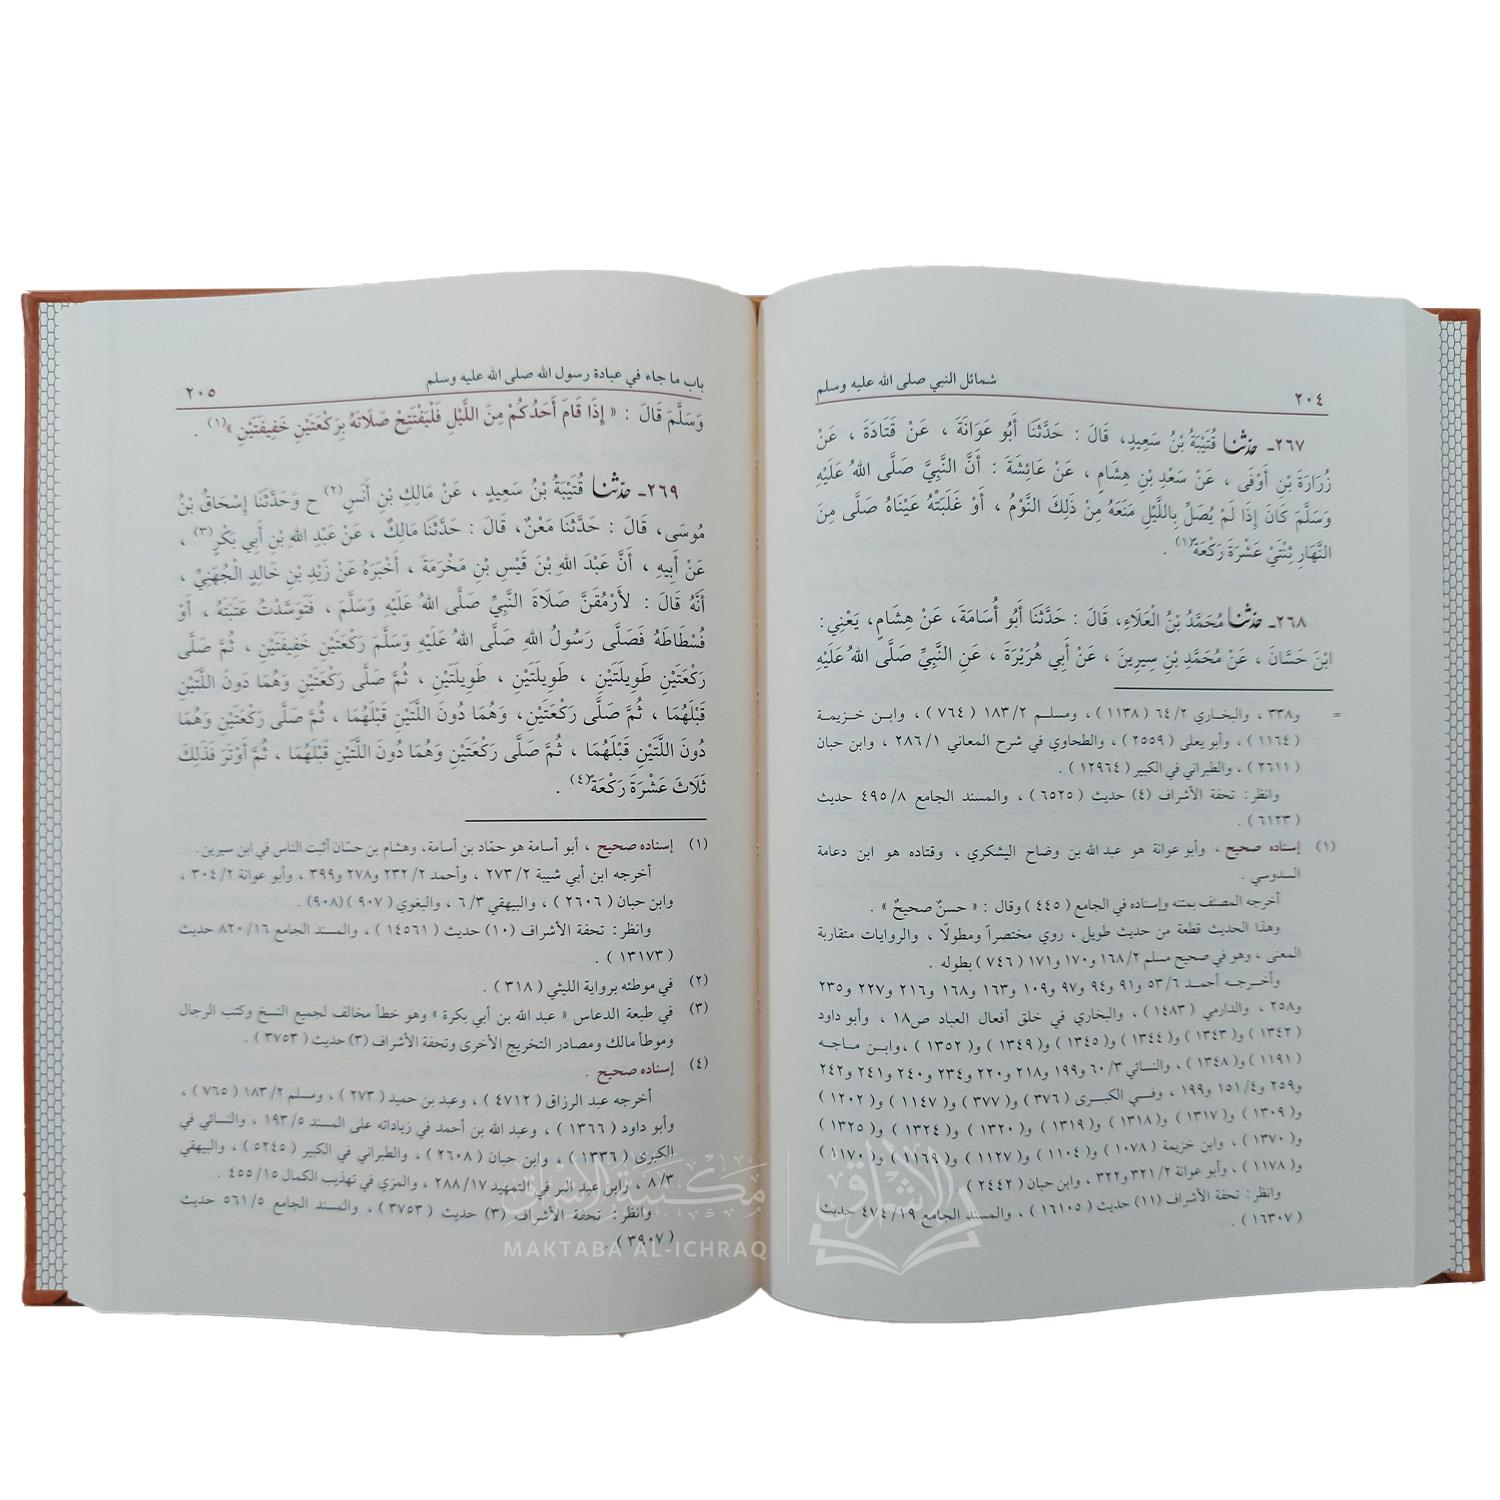 شمائل النبي صلى الله عليه وسلم
٢٠٤
٢٦٧ـ حدثنا قُتَيْبَةُ بْنُ سَعِيدٍ، قَالَ : حَدَّثَنَا أَبُو عَوَانَةَ ، عَنْ قَتَادَةَ ، عَنْ
زُرَارَةَ بْنِ أَوْفَى ، عَنْ سَعْدِ بْنِ هِشَامٍ ، عَنْ عَائِشَةَ : أَنَّ النَّبِيَّ صَلَّى اللهُ عَلَيْهِ
وَسَلَّمَ كَانَ إِذَا لَمْ يُصَلِّ بِاللَّيْلِ مَنَعَهُ مِنْ ذَلِكَ النَّوْمُ ، أَوْ غَلَبَتْهُ عَيْنَاهُ صَلَّى مِنَ
النَّهَارِ ثِنْتَيْ عَشْرَةَ رَكْعَةً(١) .
٢٦٨ـ حدثنا مُحَمَّدُ بْنُ الْعَلَاءِ، قَالَ : حَدَّثَنَا أَبُو أُسَامَةَ، عَنْ هِشَامٍ، يَعْنِي:
ابْنَ حَسَّانَ ، عَنْ مُحَمَّدِ بْنِ سِيرِينَ ، عَنْ أَبِي هُرَيْرَةَ ، عَنِ النَّبِيِّ صَلَّى اللهُ عَلَيْهِ
= و٣٣٨ ، والبخاري ٢/ ٦٤ ( ١١٣٨ ) ، ومسلم ٢/ ١٨٣ ( ٧٦٤ ) ، وابن خزيمة
( ١١٦٤ ) ، وأبو يعلى ( ٢٥٥٩ ) ، والطحاوي في شرح المعاني ١/ ٢٨٦ ، وابن حبان
( ٢٦١١ ) ، والطبراني في الكبير ( ١٢٩٦٤ ) .
وانظر: تحفة الأشراف (٤) حديث ( ٦٥٢٥ ) ، والمسند الجامع ٨/ ٤٩٥ حديث
( ٦١٢٣ ) .
(١) إسناده صحيح ، وأبو عوانة هو عبد الله بن وضاح اليشكري ، وقتاده هو ابن دعامة
السدوسي .
أخرجه المصنف بمتنه وإسناده في الجامع ( ٤٤٥ ) وقال : « حسنٌ صحيحٌ » .
وهذا الحديث قطعة من حديث طويل ، روي مختصراً ومطولًا ، والروايات متقاربة
المعنى ، وهو في صحيح مسلم ٢/ ١٦٨ و١٧٠ و١٧١ ( ٧٤٦ ) بطوله .
وأخرجه أحمد ٦/ ٥٣ و٩١ و٩٤ و٩٧ و١٠٩ و١٦٣ و١٦٨ و٢١٦ و٢٢٧ و٢٣٥
و٢٥٨ ، والدارمي ( ١٤٨٣ ) ، والبخاري في خلق أفعال العباد ص١٨ ، وأبو داود
( ١٣٤٢ ) و( ١٣٤٣ ) و( ١٣٤٤ ) و( ١٣٤٥ ) و( ١٣٤٩ ) و( ١٣٥٢ ) ،وابن ماجه
( ١١٩١ ) و( ١٣٤٨ ) ، والنسائي ٣/ ٦٠ و١٩٩ و٢١٨ و٢٢٠ و٢٣٤ و٢٤٠ و٢٤١ و٢٤٢
و٢٥٩ و٤/ ١٥١ و١٩٩ ، وفي الكبرى ( ٣٧٦ ) و( ٣٧٧ ) و( ١١٤٧ ) و( ١٢٠٢ )
و( ١٣٠٩ ) و( ١٣١٧ ) و( ١٣١٨ ) و( ١٣١٩ ) و( ١٣٢٠ ) و( ١٣٢٤ ) و( ١٣٢٥ )
و( ١٣٧٠ ) ، وابن خزيمة ( ١٠٧٨ ) و( ١١٠٤ ) و( ١١٢٧ ) و( ١١٦٩ ) و( ١١٧٠ )
و( ١١٧٨ ) ، وأبو عوانة ٢/ ٣٢١ و٣٢٢ ، وابن حبان ( ٢٤٤٢ ) .
وانظر: تحفة الأشراف (١١) حديث ( ١٦١٠٥ ) ، والمسند الجامع ١٩/ ٤٧٤ حديث
( ١٦٣٠٧ ) .
باب ما جاء في عبادة رسول الله صلى الله عليه وسلم
٢٠٥
وَسَلَّمَ قَالَ : « إِذَا قَامَ أَحَدُكُمْ مِنَ اللَّيْلِ فَلْيَفْتَتِحْ صَلَاتَهُ بِرَكْعَتَيْنِ خَفِيفَتَيْنِ »(١) .
٢٦٩ـ حدثنا قُتَيْبَةُ بْنُ سَعِيدٍ ، عَنْ مَالِكِ بْنِ أَنَسٍ(٢) ح وَحَدَّثَنَا إِسْحَاقُ بْنُ
مُوسَى، قَالَ : حَدَّثَنَا مَعْنٌ، قَالَ: حَدَّثَنَا مَالِكٌ ، عَنْ عَبْدِ اللهِ بْنِ أَبِي بَكْرٍ(٣) ،
عَنْ أَبِيهِ ، أَنَّ عَبْدَ اللهِ بْنَ قَيْسِ بْنِ مَخْرَمَةَ ، أَخْبَرَهُ عَنْ زَيْدِ بْنِ خَالِدٍ الْجُهَنِيِّ ،
أَنَّهُ قَالَ : لأَرْمُقَنَّ صَلَاةَ النَّبِيِّ صَلَّى اللهُ عَلَيْهِ وَسَلَّمَ ، فَتَوَسَّدْتُ عَتَبَتَهُ ، أَوْ
فُسْطَاطَهُ فَصَلَّى رَسُولُ اللهِ صَلَّى اللهُ عَلَيْهِ وَسَلَّمَ رَكْعَتَيْنِ خَفِيفَتَيْنِ ، ثُمَّ صَلَّى
رَكْعَتَيْنِ طَوِيلَتَيْنِ ، طَوِيلَتَيْنِ ، طَوِيلَتَيْنِ ، ثُمَّ صَلَّى رَكْعَتَيْنِ وَهُمَا دُونَ اللَّتَيْنِ
قَبْلَهُمَا ، ثُمَّ صَلَّى رَكْعَتَيْنِ، وَهُمَا دُونَ اللَّتَيْنِ قَبْلَهُمَا ، ثُمَّ صَلَّى رَكْعَتَيْنِ وَهُمَا
دُونَ اللَّتَيْنِ قَبْلَهُمَا ، ثُمَّ صَلَّى رَكْعَتَيْنِ وَهُمَا دُونَ اللَّتَيْنِ قَبْلَهُمَا ، ثُمَّ أَوْتَرَ فَذَلِكَ
ثَلَاثَ عَشْرَةَ رَكْعَةً(٤) .
(١) إسناده صحيح ، أبو أسامة هو حمّاد بن أسامة، وهشام بن حسّان أثبت الناس في ابن سيرين.
أخرجه ابن أبي شيبة ٢/ ٢٧٣ ، وأحمد ٢/ ٢٣٢ و٢٧٨ و٣٩٩ ، وأبو عوانة ٢/ ٣٠٤ ،
وابن حبان ( ٢٦٠٦ ) ، والبيهقي ٣/ ٦ ، والبغوي ( ٩٠٧ ) (٩٠٨) .
وانظر: تحفة الأشراف (١٠) حديث ( ١٤٥٦١ ) ، والمسند الجامع ١٦/ ٨٢٠ حديث
( ١٣١٧٣ ) .
(٢) في موطئه برواية الليثي ( ٣١٨ ) .
(٣) في طبعة الدعاس « عبد الله بن أبي بكرة » وهو خطأ مخالف لجميع النسخ وكتب الرجال
وموطأ مالك ومصادر التخريج الأخرى وتحفة الأشراف (٣) حديث ( ٣٧٥٣ ) .
(٤) إسناده صحيح .
أخرجه عبد الرزاق ( ٤٧١٢ ) ، وعبد بن حميد ( ٢٧٣ ) ، ومسلم ٢/ ١٨٣ ( ٧٦٥ ) ،
وأبو داود ( ١٣٦٦ ) ، وعبد الله بن أحمد في زياداته على المسند ٥/ ١٩٣ ، والنسائي في
الكبرى ( ١٣٣٦ ) ، وابن حبان ( ٢٦٠٨ ) ، والطبراني في الكبير ( ٥٢٤٥ ) ، والبيهقي
٣/ ٨ ، وابن عبد البر في التمهيد ١٧/ ٢٨٨ ، والمزي في تهذيب الكمال ١٥/ ٤٥٥ .
وانظر: تحفة الأشراف (٣) حديث ( ٣٧٥٣ ) ، والمسند الجامع ٥/ ٥٦١ حديث
( ٣٩٠٧ ) .
مكتبة الإشراق
MAKTABA AL-ICHRAQ
الإشراق